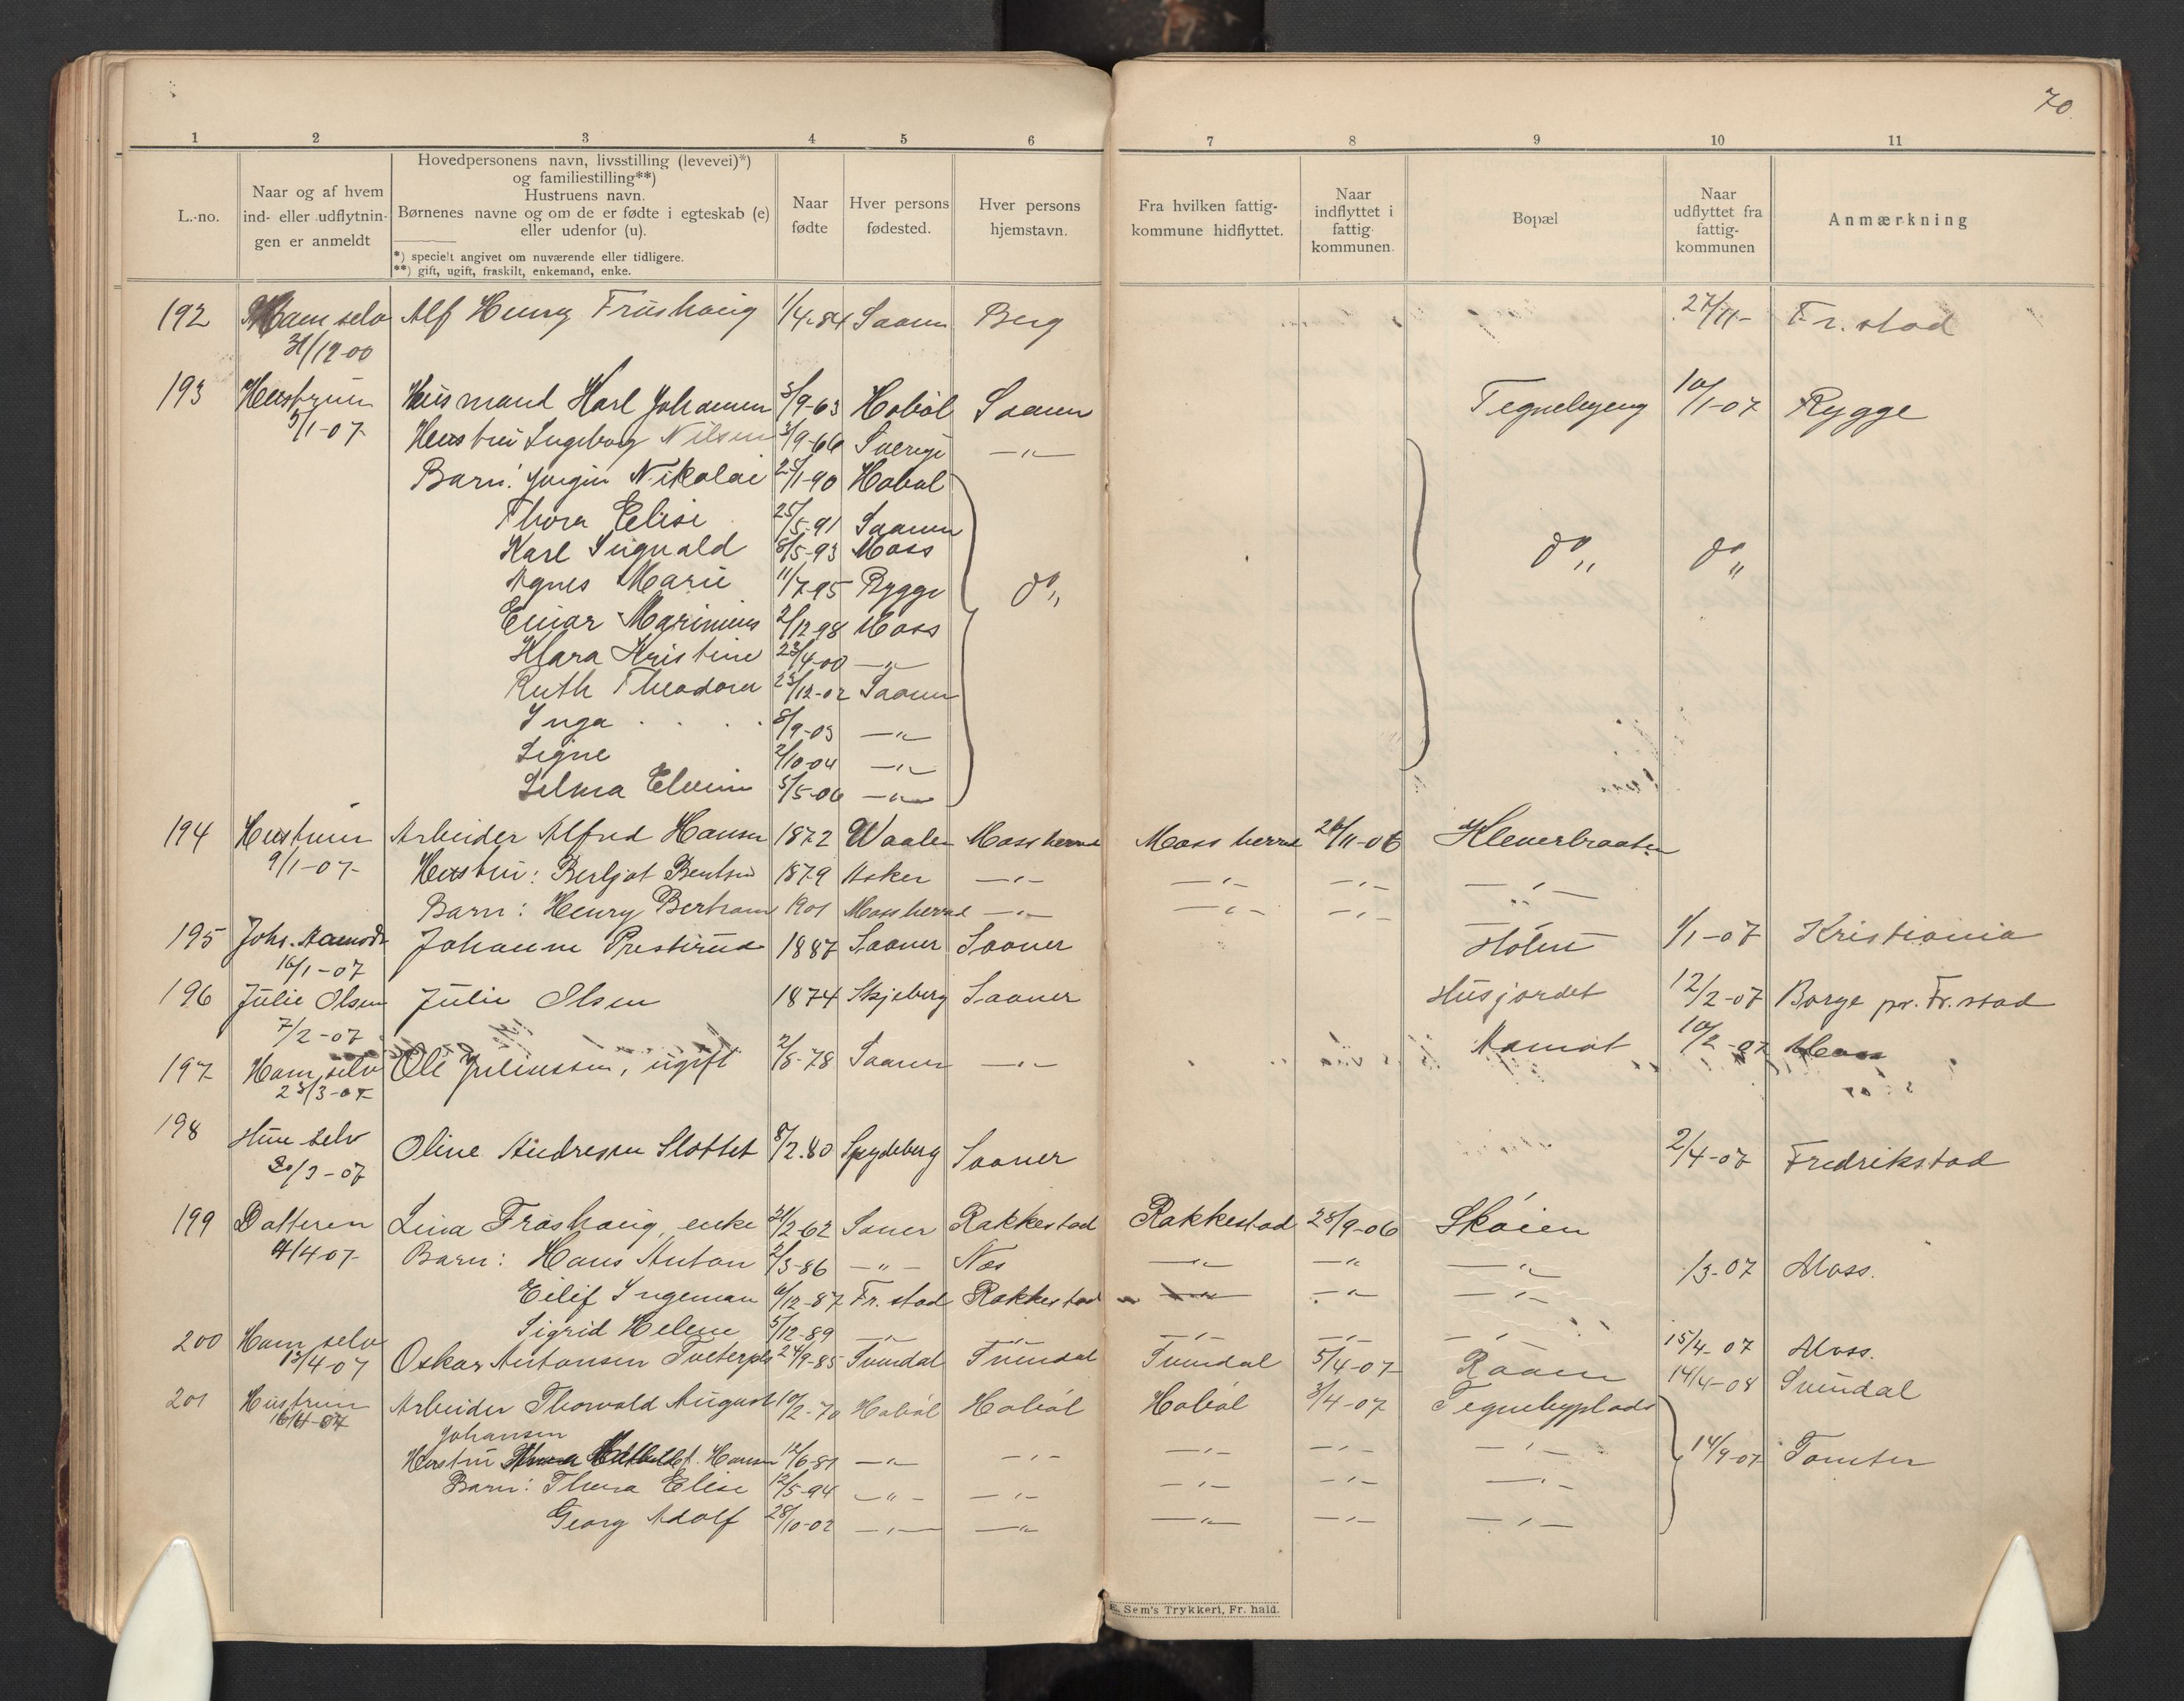 70
1 2 3 4 5 6 7 8 9 10 11
L.-no.
Naar og af hvem
ind- eller udflytnin-
gen er anmeldt
Hovedpersonens navn, livsstilling (levevei)*)
og familiestilling**)
Hustruens navn.
Børnenes navne og om de er fødte i egteskab (e)
eller udenfor (u).
*) specielt angivet om nuværende eller tidligere.
**) gift, ugift, fraskilt, enkemand, enke.
Naar
fødte
Hver persons
fødested.
Hver persons
hjemstavn.
Fra hvilken fattig-
kommune hidflyttet.
Naar
indflyttet i
fattig-
kommunen.
Bopæl
Naar
udflyttet fra
fattig-
kommunen
Anmærkning
192 Ham selv Alf Henry Frushaug 1/4-84 Saaner Berg 27/11- Fr. stad
31/12-00
193 Hustruen Husmand Karl Johansen 3/9-63 Hobøl Saaner Tegnebyeng 10/1-07 Rygge
5/1-07 Hustru Ingeborg Nilsen 3/9-66 Sverige —"—
Barn: Jørgen Nikolai 25/1-90 Hobøl
Thora Elise 25/5-91 Saaner
Karl Sigvald 8/5-93 Moss do" do"
Agnes Marie 11/7-95 Rygge do"
Einar Marinius 2/12-98 Moss
Klara Kristine 23/4-00 —"—
Ruth Theodora 23/12-02 Saaner
Inga 8/9-03 —"—
Signe 2/10-04 —"—
Selma Elvine 5/5-06 —"—
194 Hustruen Arbeider Alfred Hansen 1872 Vaaler Moss herred Moss herred 26/11-06 Kleverbraaten
9/1-07 Hustru: Berljot Bentsen 1879 Asker —"— —"— —"— —"—
Barn: Henry Bertram 1901 Moss herred —"— —"— —"— "
195 Johs. Aamodt Johanne Presterud 1887 Saaner Saaner Hølen 1/1-07 Kristiania
16/1-07
196 Julie Olsen Julie Olsen 1874 Skjeberg Saaner Husjordet 12/2-07 Borge pr. Fr. stad
7/2-07
197 Ham selv Ole Juliussen, ugift 2/8-78 Saaner —"— Aamot 10/2-07 Moss
23/3-07
198 Hun selv Oline Andresen Slottet 8/2.80 Spydeberg Saaner 2/4-07 Fredrikstad
30/3-07
199 Datteren Lina Fraashaug, enke 21/2-62 Saner Rakkestad Rakkestad 28/9-06 Skøien
4/4-07 Barn: Hans Anton 2/3-86 —"— Nes —"— —"— —"— /3-07 Moss.
Eilif Ingeman 6/12-87 Fr. stad Rakkestad —"— —"— —"—
Sigrid Helene 5/12-89 —"— —"— —"— —"— —"— 15/4-07 Moss.
200 Ham selv Oskar Antonsen Tveterpls 24/9-85 Svindal Svindal Svindal 5/4-07 Raaen 14/4-08 Svindal
13/4-07
201 Hustruen Arbeider Thorvald August 10/2-70 Hobøl Hobøl Hobøl 3/4-07 Tegnebyplads
16/4-07 Johansen
Hustru f. Hansen 12/6-81 —"— —"— —"— —"— —"— 14/9-07 Tomter
Barn: Thora Elise 12/5-94 —"— —"— —"— —"— —"—
Georg Adolf 28/10-02 —"— —"— —"— —"— —"—
E. Sem's Trykkeri, Fr. hald.